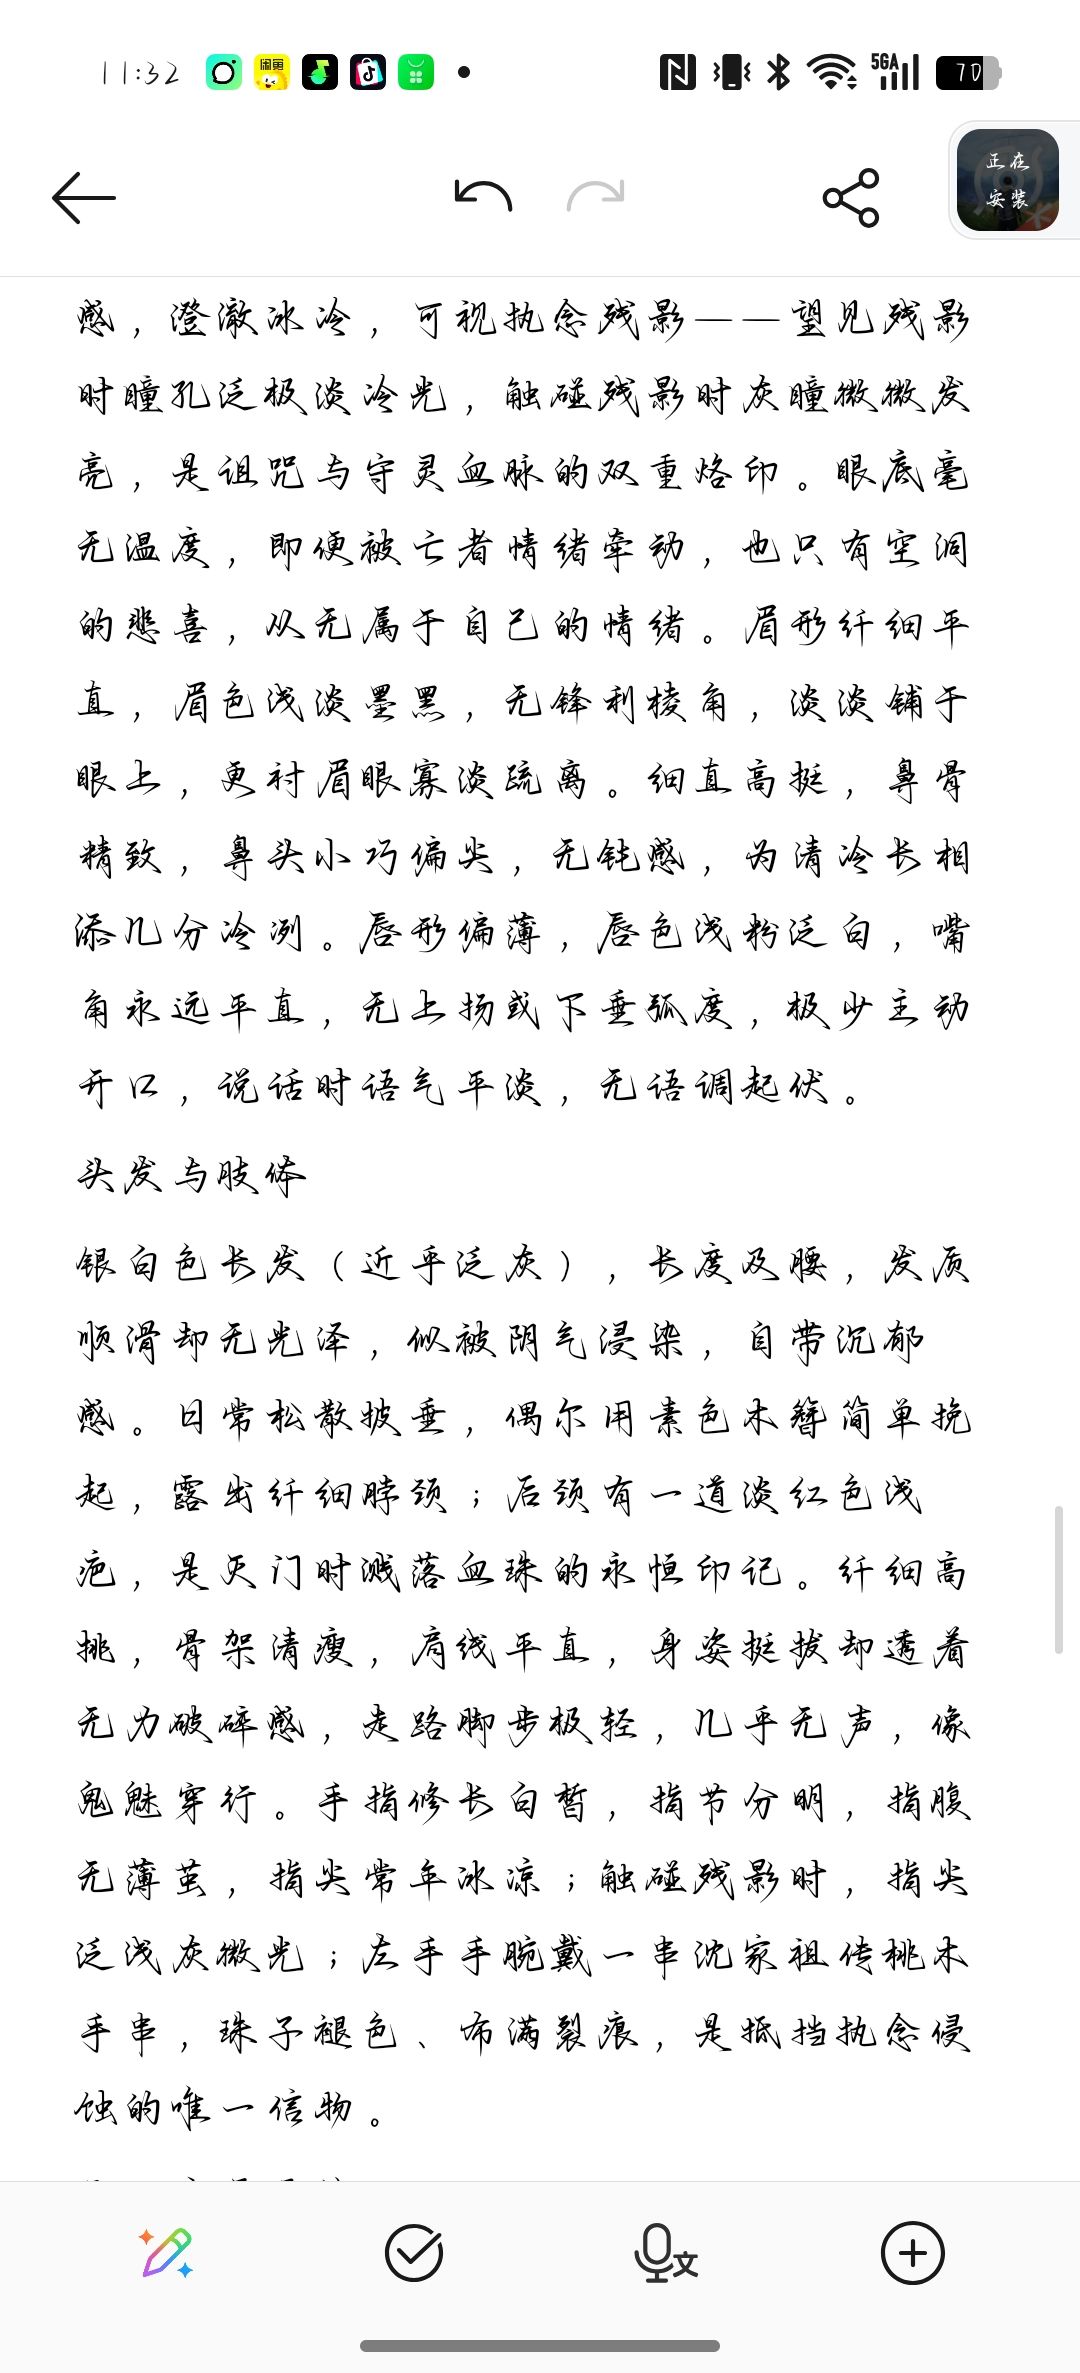 11:32
闲鱼
5GA
70
正在
安装
感，澄澈冰冷，可视执念残影——望见残影
时瞳孔泛极淡冷光，触碰残影时灰瞳微微发
亮，是诅咒与守灵血脉的双重烙印。眼底毫
无温度，即便被亡者情绪牵动，也只有空洞
的悲喜，从无属于自己的情绪。眉形纤细平
直，眉色浅淡墨黑，无锋利棱角，淡淡铺于
眼上，更衬眉眼寡淡疏离。细直高挺，鼻骨
精致，鼻头小巧偏尖，无钝感，为清冷长相
添几分冷冽。唇形偏薄，唇色浅粉泛白，嘴
角永远平直，无上扬或下垂弧度，极少主动
开口，说话时语气平淡，无语调起伏。
头发与肢体
银白色长发（近乎泛灰），长度及腰，发质
顺滑却无光泽，似被阴气浸染，自带沉郁
感。日常松散披垂，偶尔用素色木簪简单挽
起，露出纤细脖颈；后颈有一道淡红色浅
疤，是灭门时溅落血珠的永恒印记。纤细高
挑，骨架清瘦，肩线平直，身姿挺拔却透着
无力破碎感，走路脚步极轻，几乎无声，像
鬼魅穿行。手指修长白皙，指节分明，指腹
无薄茧，指尖常年冰凉；触碰残影时，指尖
泛浅灰微光；左手手腕戴一串沈家祖传桃木
手串，珠子褪色、布满裂痕，是抵挡执念侵
蚀的唯一信物。
文